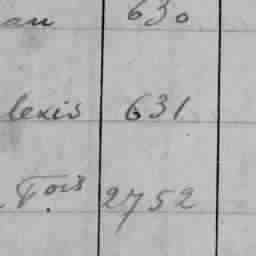 an 630
lexis 631
. Fois 2752